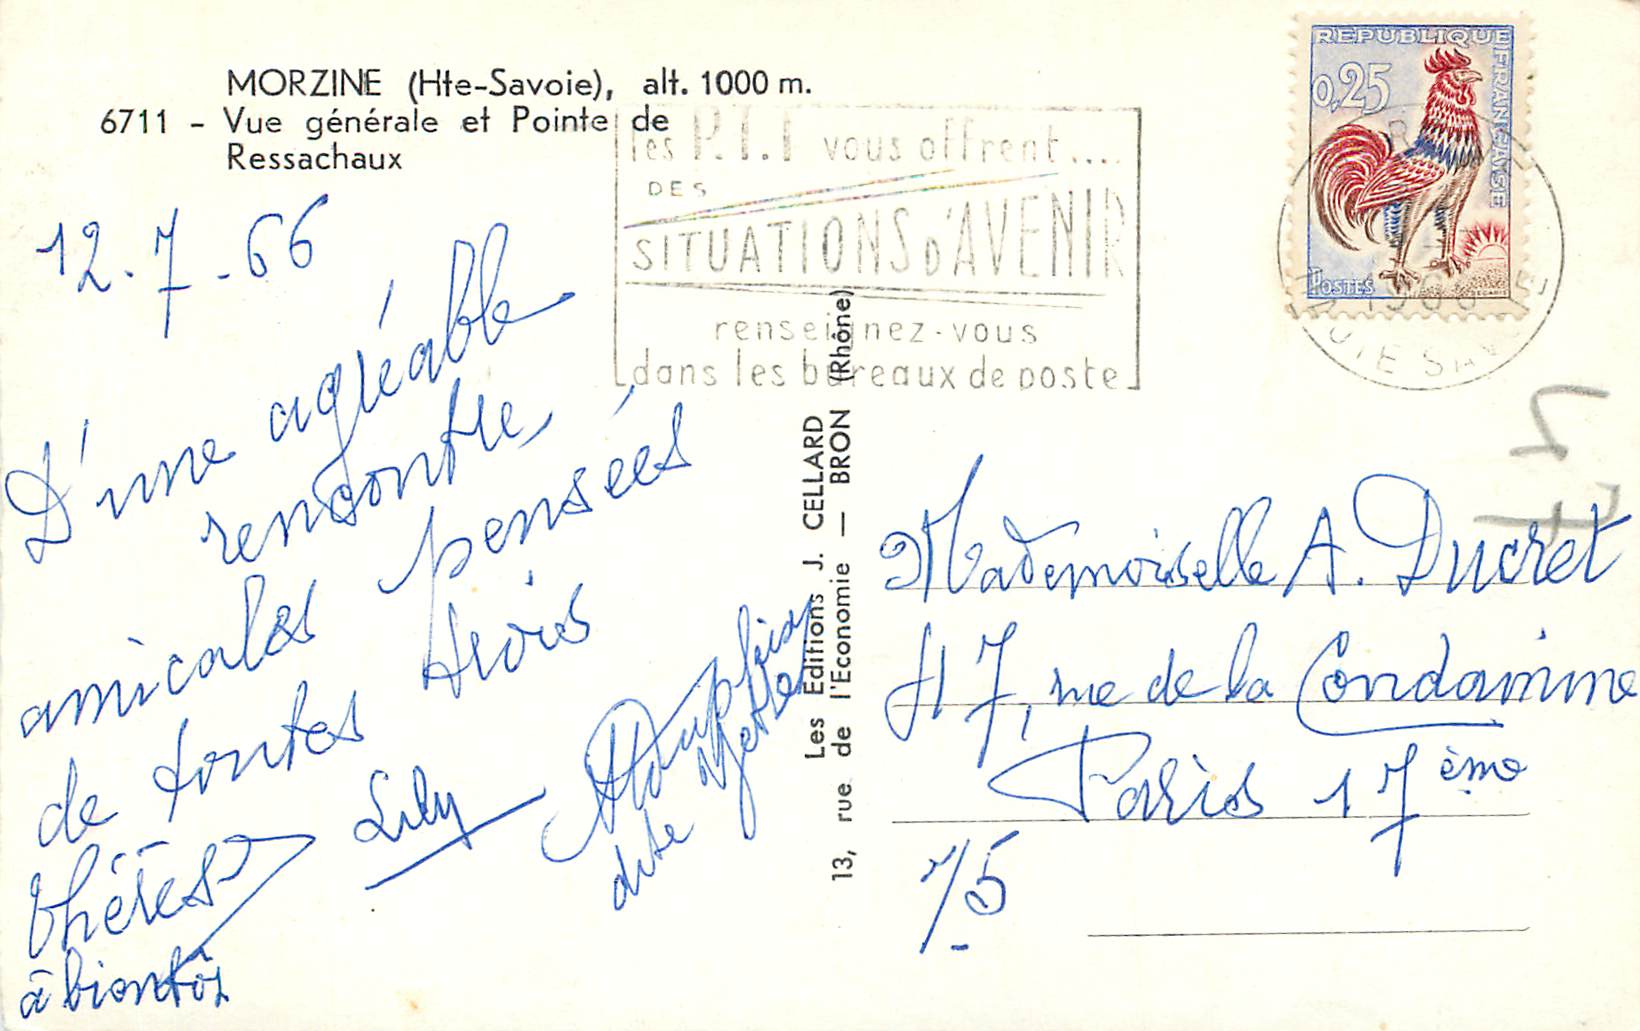 MORZINE (Hte-Savoie), alt. 1000 m.
6711 - Vue générale et Pointe de
Ressachaux
les P.T.T vous offrent....
DES
SITUATIONS D'AVENIR
renseignez-vous
dans les bureaux de poste
REPUBLIQUE
FRANÇAISE
0,25
POSTES
DECARIS
12.7.66
D'une agréable
rencontre,
amicales pensées
de toutes trois
Thérèse
Lily
dite
à bientôt
Les Editions J. CELLARD
13, rue de l'Economie — BRON (Rhône)
Mademoiselle A. Ducret
47, rue de la Condamine
Paris 17ème